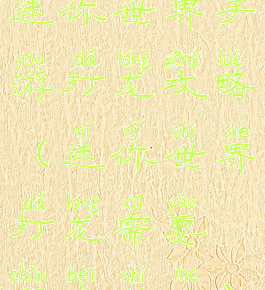 迷你世界手
yóu dǎ lóng gōng lüè
游打龙攻略
mí nǐ shì jiè
（迷你世界
dǎ lóng xū yào
打龙需要
shén